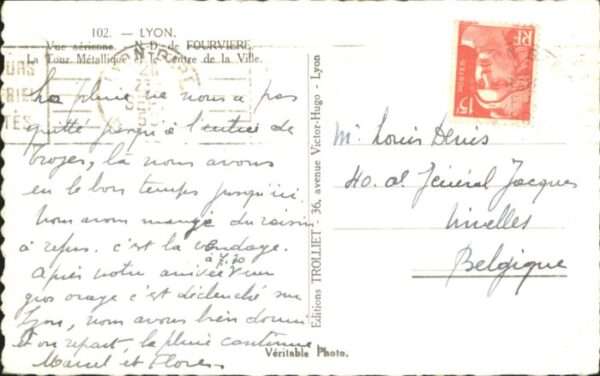 102. — LYON.
Vue aérienne. N.-D. de FOURVIERE,
La Tour Métallique et le Centre de la Ville.
La pluie ne nous a pas
quitté jusqu'à l'entrée de
Troyes, là nous avons
eu le bon temps jusqu'ici
nous avons mangé du raisin
à refus. c'est la vendage.
à 7.30
Après notre arrivée un
gros orage c'est déclenché sur
Lyon, nous avons bien dormi
et on repart, la pluie continue
Marcel et
Véritable Photo.
Editions TROLLIET - 36, avenue Victor-Hugo - Lyon
RF
15F
POSTES
Mr Louis Denis
40. al Général Jacques
Nivelles
Belgique